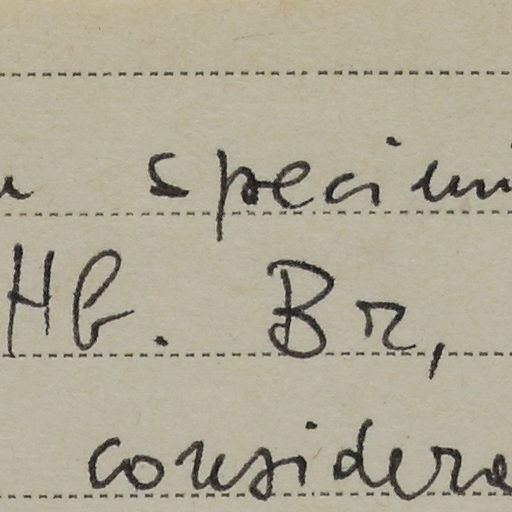 specimi
Hb. Br,
considera